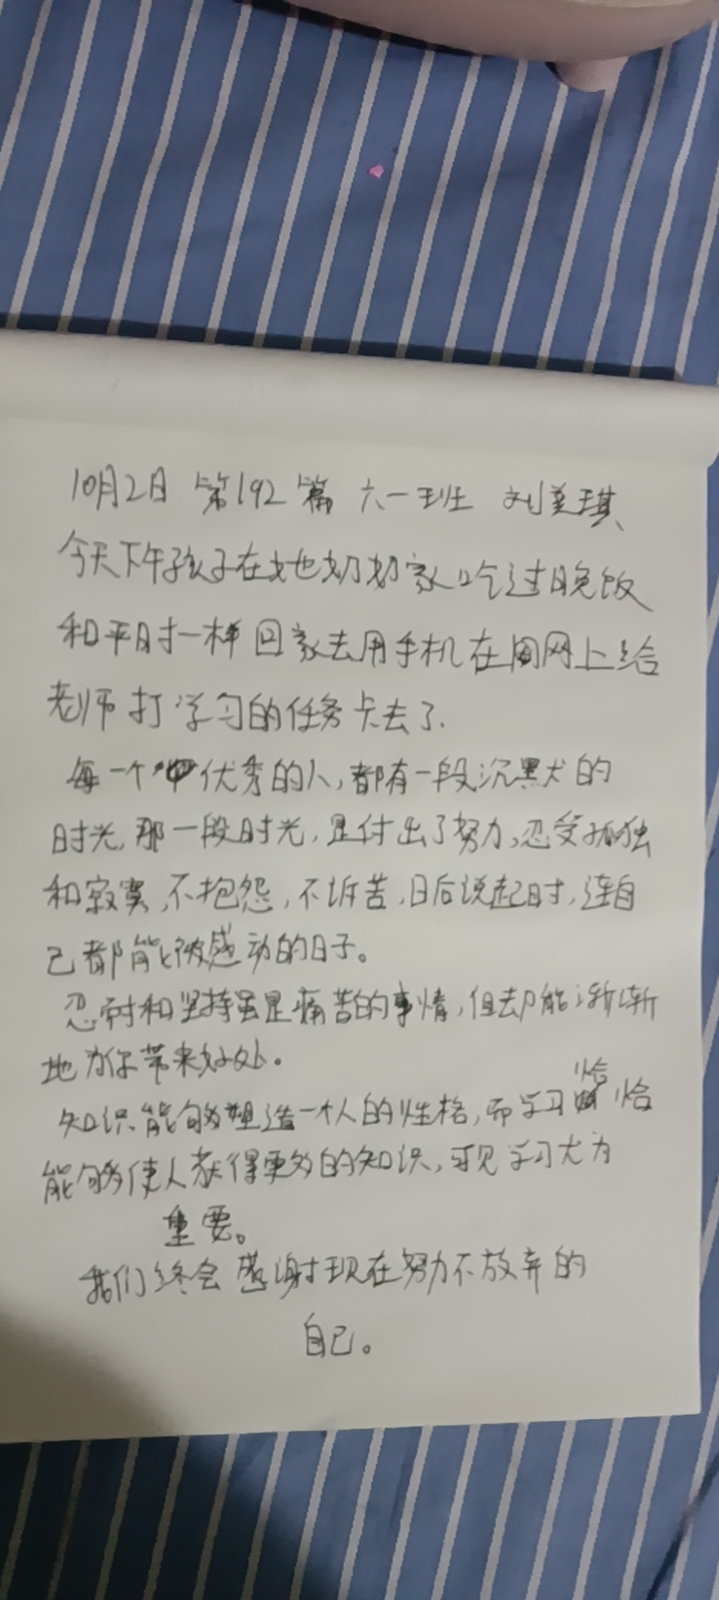 10月2日 第192篇 六一班 刘美琪
今天下午孩子在她奶奶家吃过晚饭
和平时一样回家去用手机在网上给
老师打学习的任务卡去了.
每一个优秀的人,都有一段沉默的
时光,那一段时光,是付出了努力,忍受孤独
和寂寞,不抱怨,不诉苦,日后说起时,连自
己都能被感动的日子。
忍耐和坚持虽是痛苦的事情,但却能渐渐
地为你带来好处。
知识能够塑造一个人的性格,而学习恰恰
能够使人获得更多的知识,可见学习尤为
重要。
我们终会感谢现在努力不放弃的
自己。